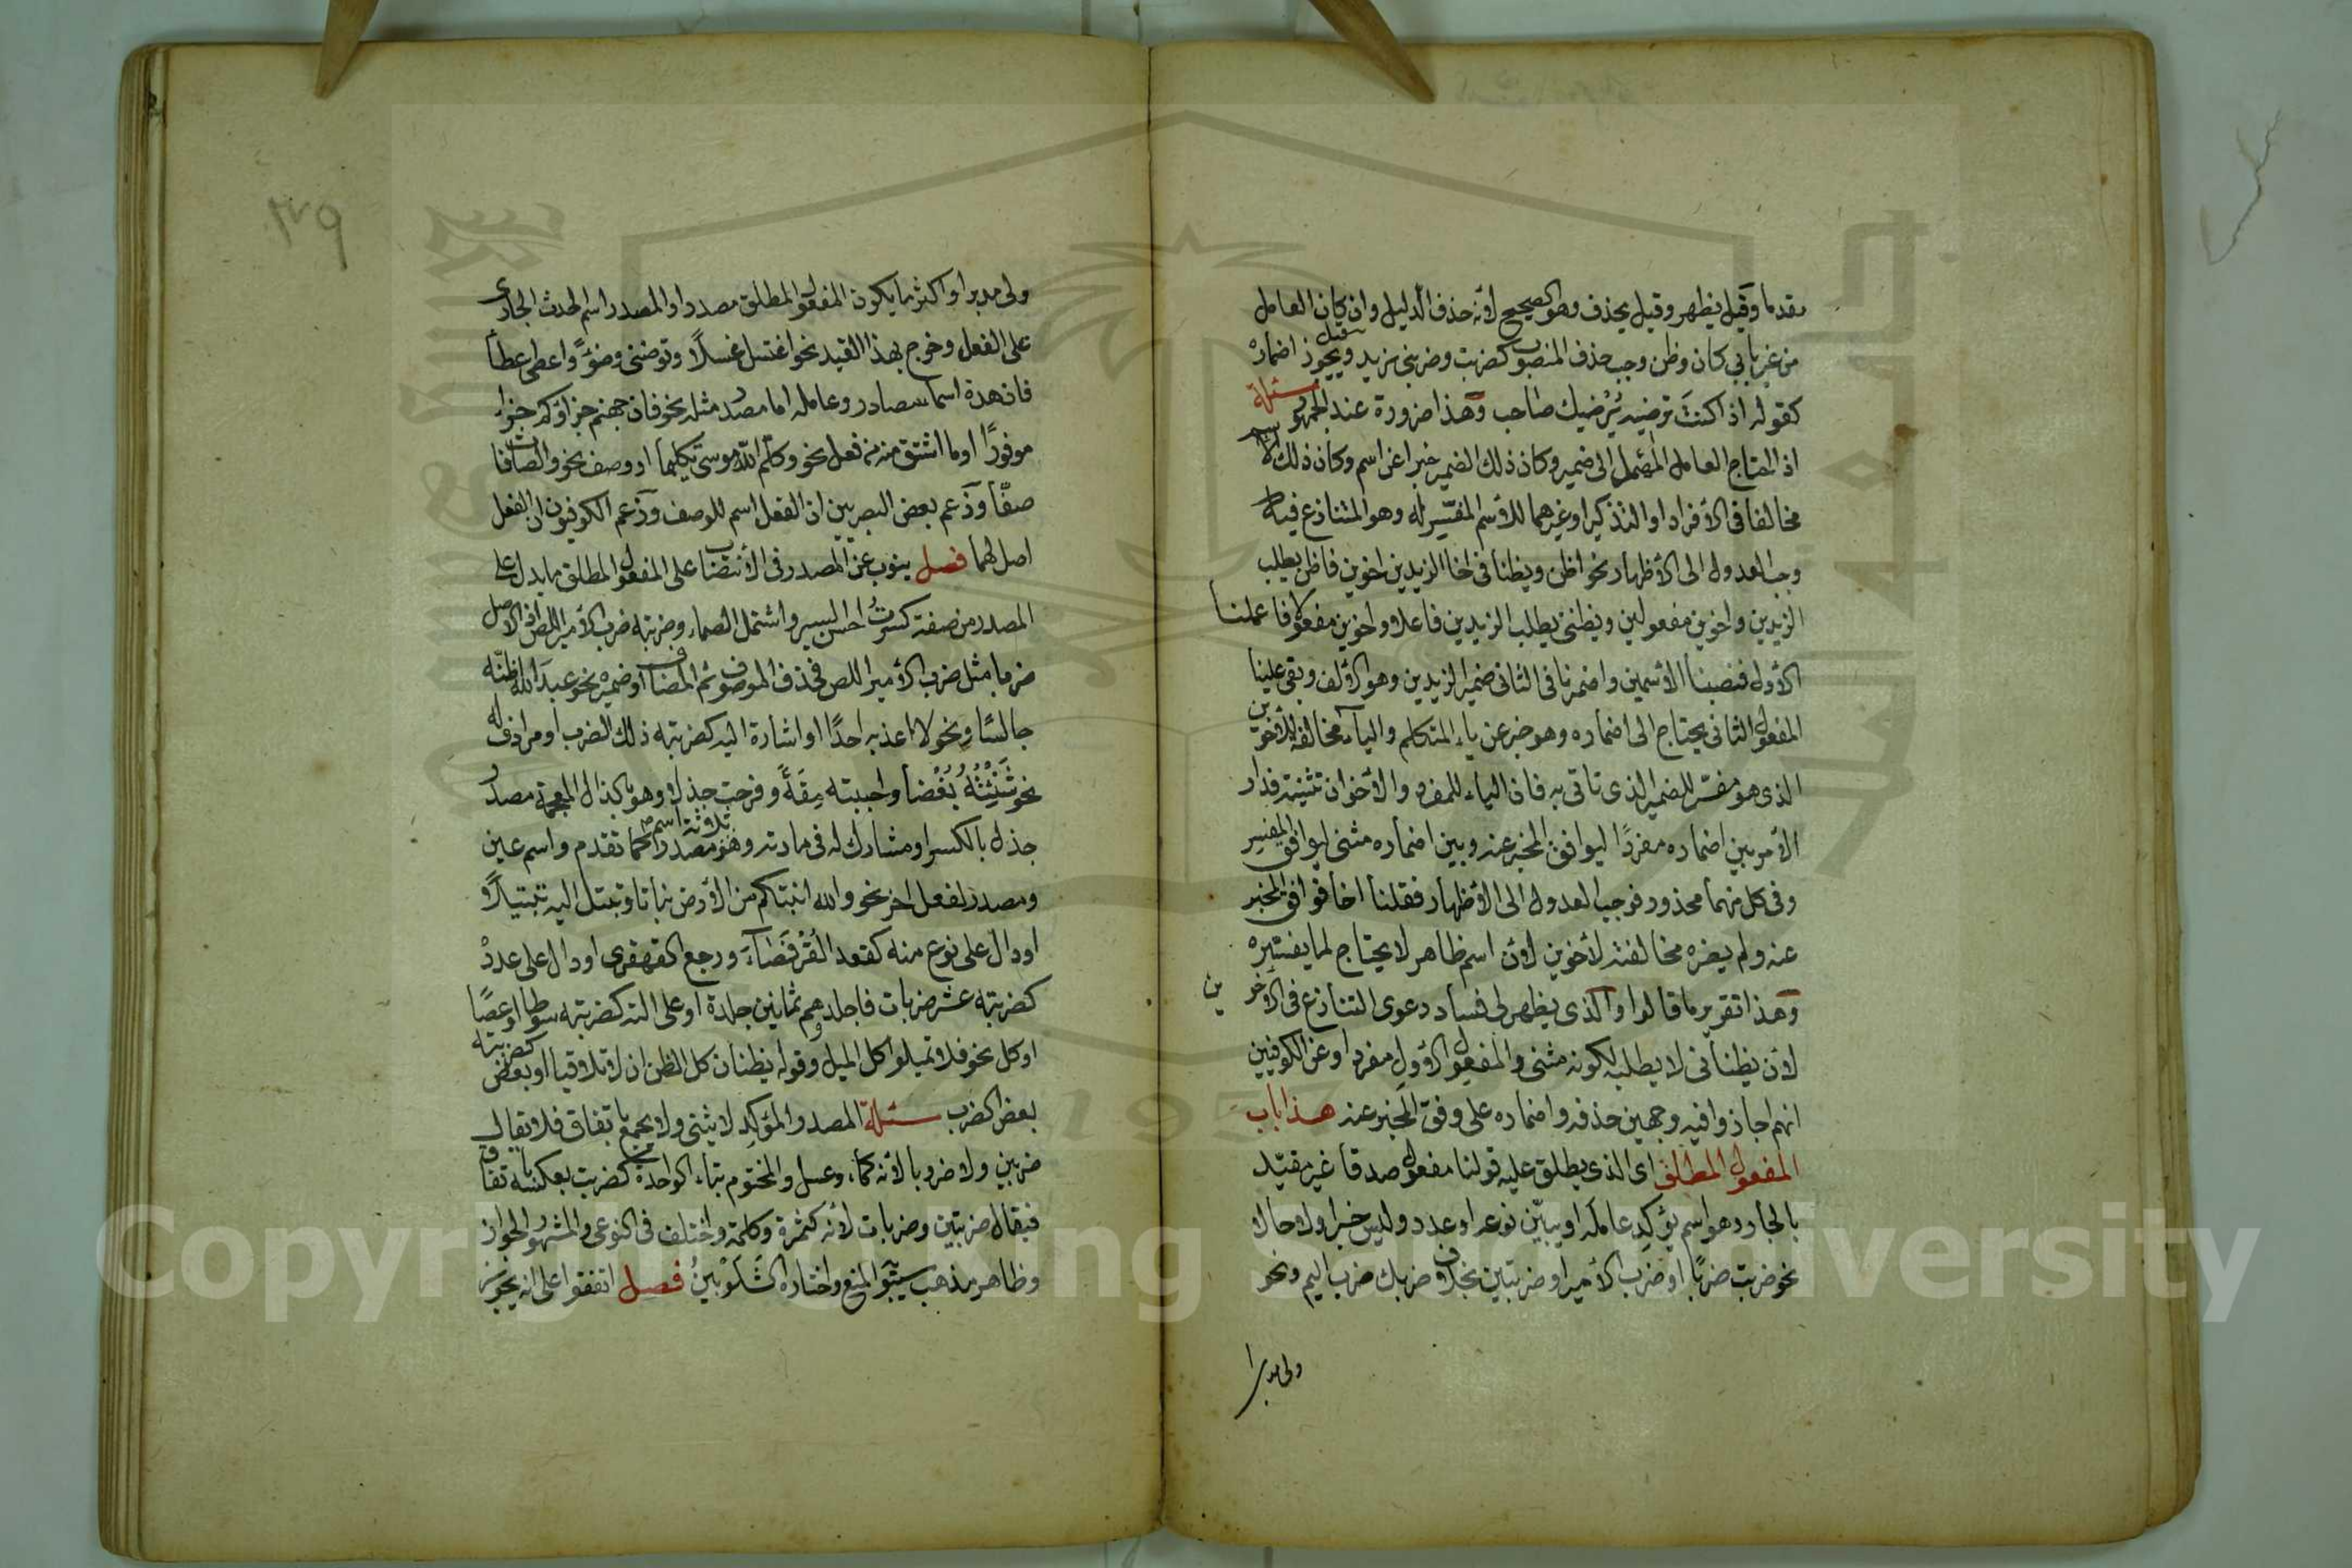 مقدما وقيل يظهر وقيل يحذف وهو الصحيح لأنه حذف الدليل وان كان العامل
من غير بابي كان وظن وجب حذف المنصوب كضربت وضربني زيد وقيل يجوز اضماره
كقوله اذا كنت ترضيه يرضيك صاحب وهذا ضرورة عند الجمهور مسئلة
اذا احتاج العامل المهمل الى ضمير وكان ذلك الضمير خبرا عن اسم وكان ذلك الاسم
مخالفا في الأفراد او التذكير او غيرهما للأسم المفسر له وهو المتنازع فيه
وجب العدول الى الأظهار نحو اظن ويظنا في اخا الزيدين اخوين فاظن يطلب
الزيدين واخوين مفعولين ويظنني يطلب الزيدين فاعلا واخوين مفعولا فاعملنا
الأول فنصبنا الأسمين واضمرنا في الثاني ضمير الزيدين وهو الألف وبقي علينا
المفعول الثاني يحتاج الى اضماره وهو خبر عن ياء المتكلم والياء مخالفة للأخوين
الذي هو مفسر للضمير الذي تاتي به فان الياء للمفرد والأخوان تثنية فدار
الأمر بين اضماره مفردا ليوافق المخبر عنه وبين اضماره مثنى ليوافق المفسر
وفي كل منهما محذور فوجب العدول الى الأظهار فقلنا اخا فوافق المخبر
عنه ولم يضره مخالفته لأخوين لأن اسم ظاهر لا يحتاج لما يفسره
وهذا تقرير ما قالوا والذي يظهر لي فساد دعوى التنازع في الأخوين
لأن يظناني لا يطلبه لكونه مثنى والمفعول الأول مفردا وعن الكوفيين
انهم اجازوا فيه وجهين حذفه واضماره على وفق المخبر عنه هذا باب
المفعول المطلق اي الذي يطلق عليه قولنا مفعول صدقا غير مقيد
بالجار وهو اسم يؤكد عامله او يبين نوعه او عدد وليس خبرا ولا حالا
نحو ضربت ضربا او ضرب الأمير او ضربتين بخلاف ضربك ضرب اليم ونحو
ولى مدبرا
٣٧٩
ولى مدبرا واكثر ما يكون المفعول المطلق مصدرا والمصدر اسم الحدث الجاري
على الفعل وخرج بهذا القيد نحو اغتسل غسلا وتوضئ وضوءا واعطى عطأ
فان هذه اسما مصادر وعامله اما مصدر مثله نحو فان جهنم جزاؤكم جزاء
موفورا اوما اشتق منه من فعل نحو وكلم الله موسى تكليما او وصف نحو والصافات
صفا وزعم بعض البصريين ان الفعل اسم للوصف وزعم الكوفيون ان الفعل
اصل لهما فصل ينوب عن المصدر في الأنتصاب على المفعول المطلق ما يدل على
المصدر من صفة كسرت احسن السير واشتمل الصماء وضربته ضرب الأمير اللص اذ الاصل
ضربا مثل ضرب الأمير اللص فحذف الموصوف ثم المضاف اوضميره نحو عبد الله اظنه
جالسا ونحو لا اعذبه احدا او اشارة اليه كضربته ذلك الضرب او مرادف له
نحو شنئته بغضا واحببته مقة وفرحت جذلا وهو بالذال المعجمة مصدر
جذل بالكسر او مشارك له في مادته وهو ثلاثة اسم مصدر كما تقدم واسم عين
ومصدر لفعل اخر نحو والله انبتكم من الأرض نباتا وتبتل اليه تبتيلا
او دال على نوع منه كقعد القرفصاء ورجع القهقرى او دال على عدد
كضربته عشر ضربات فاجلدوهم ثمانين جلدة او على الته كضربته سوطا او عصا
او كل نحو فلا تميلوا كل الميل وقوله يظنان كل الظن ان لا تلاقيا او بعض كضربته
بعض الضرب مسئلة المصدر المؤكد لا يثنى ولا يجمع باتفاق فلا يقال
ضربين ولا ضروبا لأنه كماء وعسل والمختوم بتاء الواحدة كضربت بعكسه باتفاق
فيقال ضربتين وضربات لأنه كتمرة وكلمة واختلف في النوعي والمشهور الجواز
وظاهر مذهب سيبويه المنع واختاره الشلوبين فصل اتفقوا على انه يجوز
Copyright © King Saud University